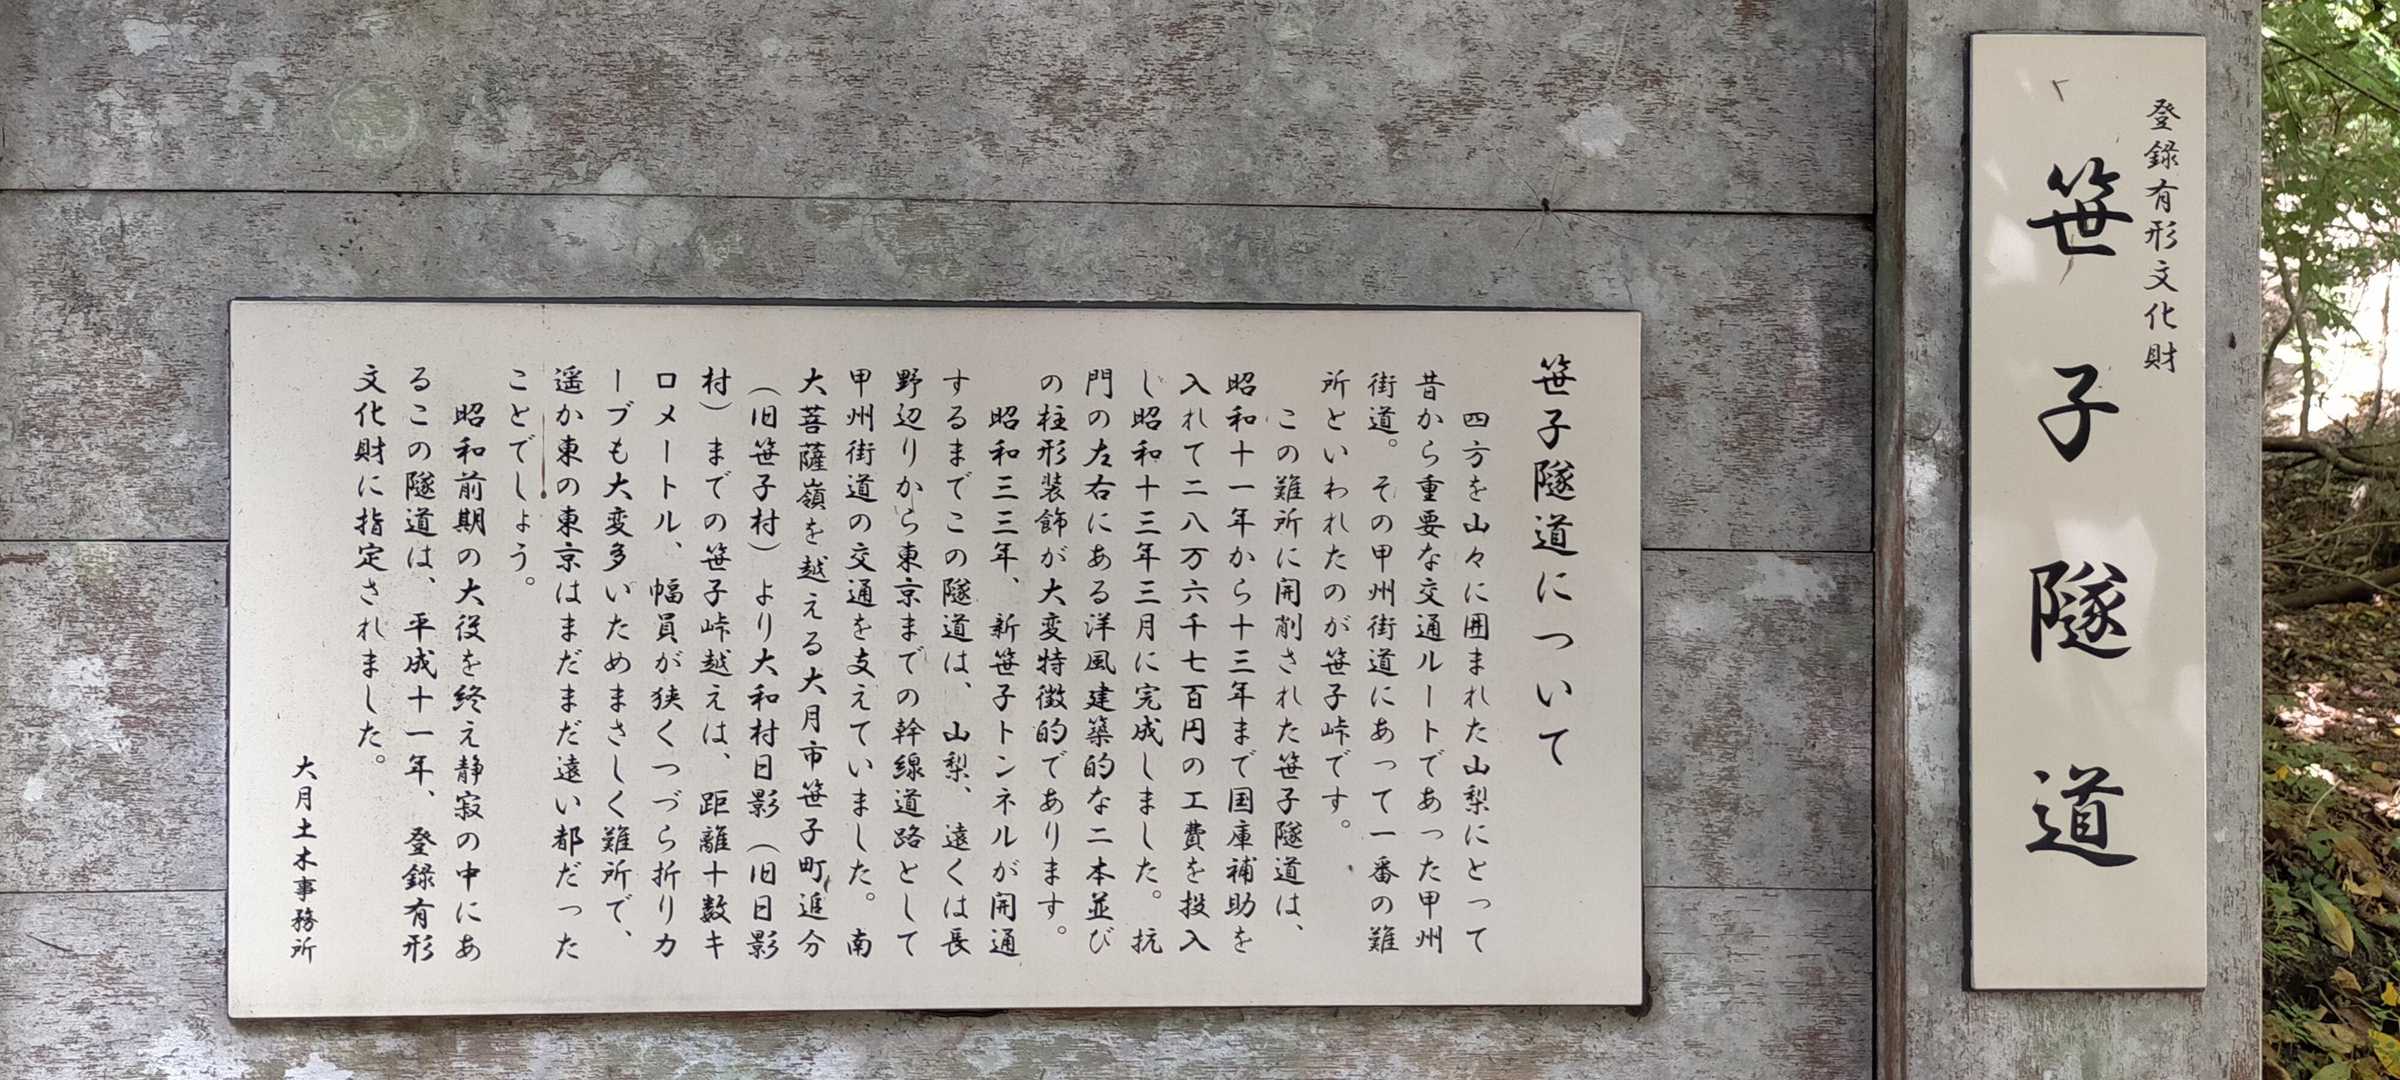 登録有形文化財
笹子隧道
笹子隧道について
四方を山々に囲まれた山梨にとって
昔から重要な交通ルートであった甲州
街道。その甲州街道にあって一番の難
所といわれたのが笹子峠です。
この難所に開削された笹子隧道は、
昭和十一年から十三年まで国庫補助を
入れて二八万六千七百円の工費を投入
し昭和十三年三月に完成しました。抗
門の左右にある洋風建築的な二本並び
の柱形装飾が大変特徴的であります。
昭和三三年、新笹子トンネルが開通
するまでこの隧道は、山梨、遠くは長
野辺りから東京までの幹線道路として
甲州街道の交通を支えていました。南
大菩薩嶺を越える大月市笹子町追分
（旧笹子村）より大和村日影（旧日影
村）までの笹子峠越えは、距離十数キ
ロメートル、幅員が狭くつづら折りカ
ーブも大変多いためまさしく難所で、
遥か東の東京はまだまだ遠い都だった
ことでしょう。
昭和前期の大役を終え静寂の中にあ
るこの隧道は、平成十一年、登録有形
文化財に指定されました。
大月土木事務所